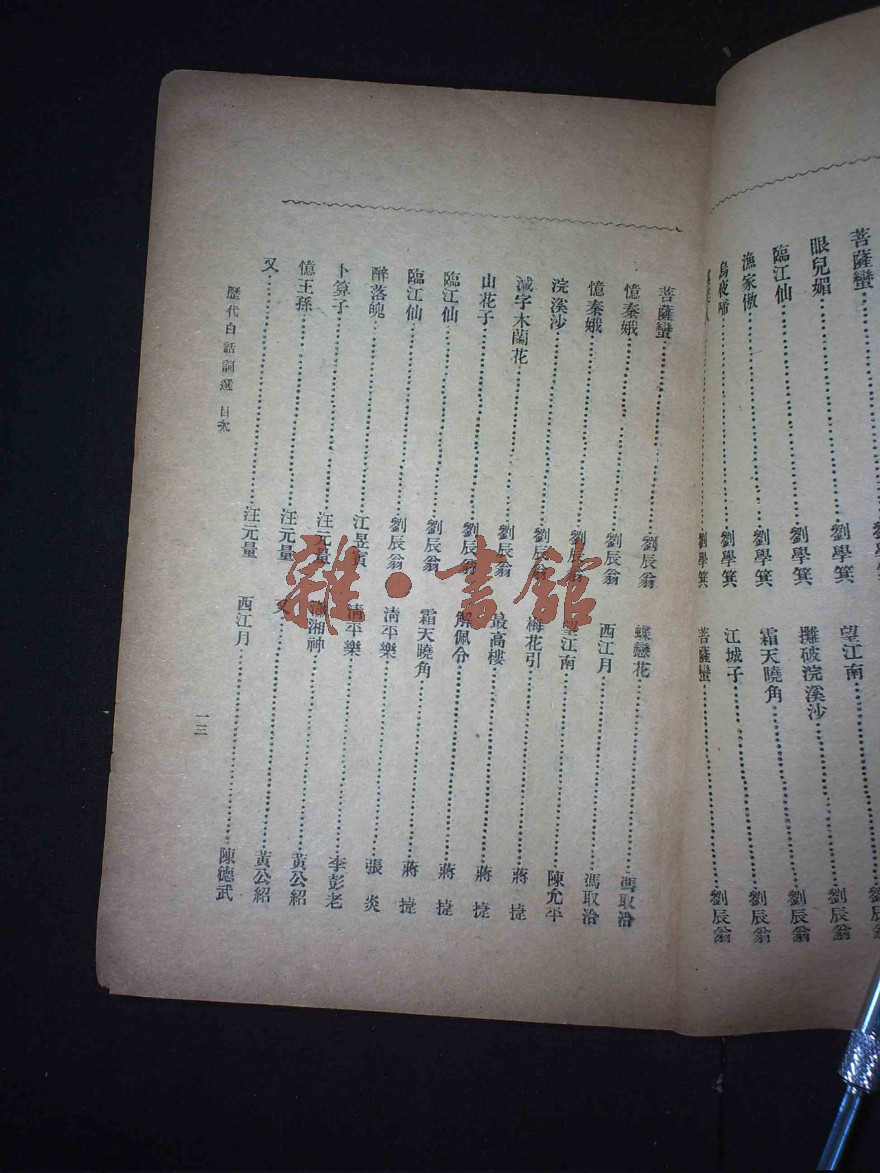 菩薩蠻……劉學箕
眼兒媚……劉學箕
臨江仙……劉學箕
漁家傲……劉學箕
烏夜啼……劉學箕
劉辰翁
望江南……劉辰翁
攤破浣溪沙……劉辰翁
霜天曉角……劉辰翁
江城子……劉辰翁
菩薩蠻……
菩薩蠻……劉辰翁
憶秦娥……劉辰翁
憶秦娥……劉辰翁
浣溪沙……劉辰翁
減字木蘭花……劉辰翁
山花子……劉辰翁
臨江仙……劉辰翁
臨江仙……劉辰翁
醉落魄……江昱
卜算子……汪元量
憶王孫……汪元量
又……汪元量
蝶戀花……馮取洽
西江月……馮取洽
望江南……陳允平
梅花引……蔣捷
最高樓……蔣捷
解佩令……蔣捷
霜天曉角……蔣捷
清平樂……張炎
清平樂……李彭老
瀟湘神……黃公紹
又……黃公紹
西江月……陳德武
歷代白話詞選 目次
一三
雜·書館